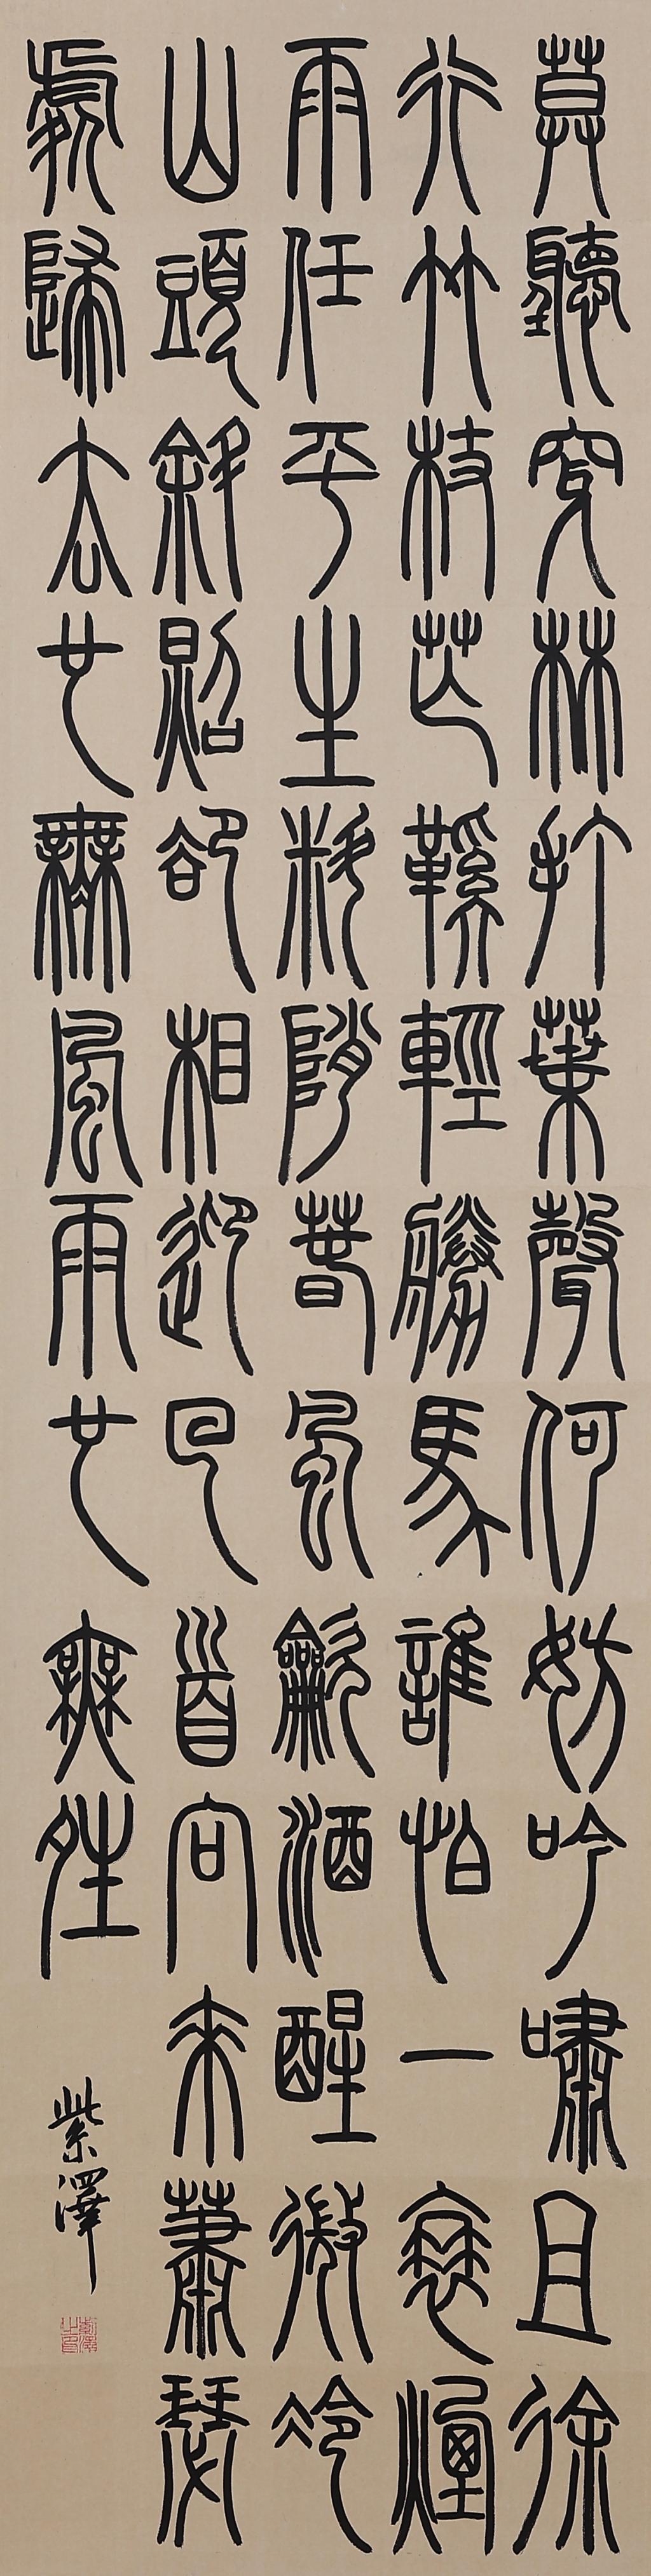 莫聽穿林打葉聲何妨吟嘯且徐
行竹杖芒鞵輕勝馬誰怕一蓑煙
雨任平生料陗春風龡酒醒微冷
山頭斜照卻相迎回首向來蕭瑟
處歸去也無風雨也無夝
紫澤